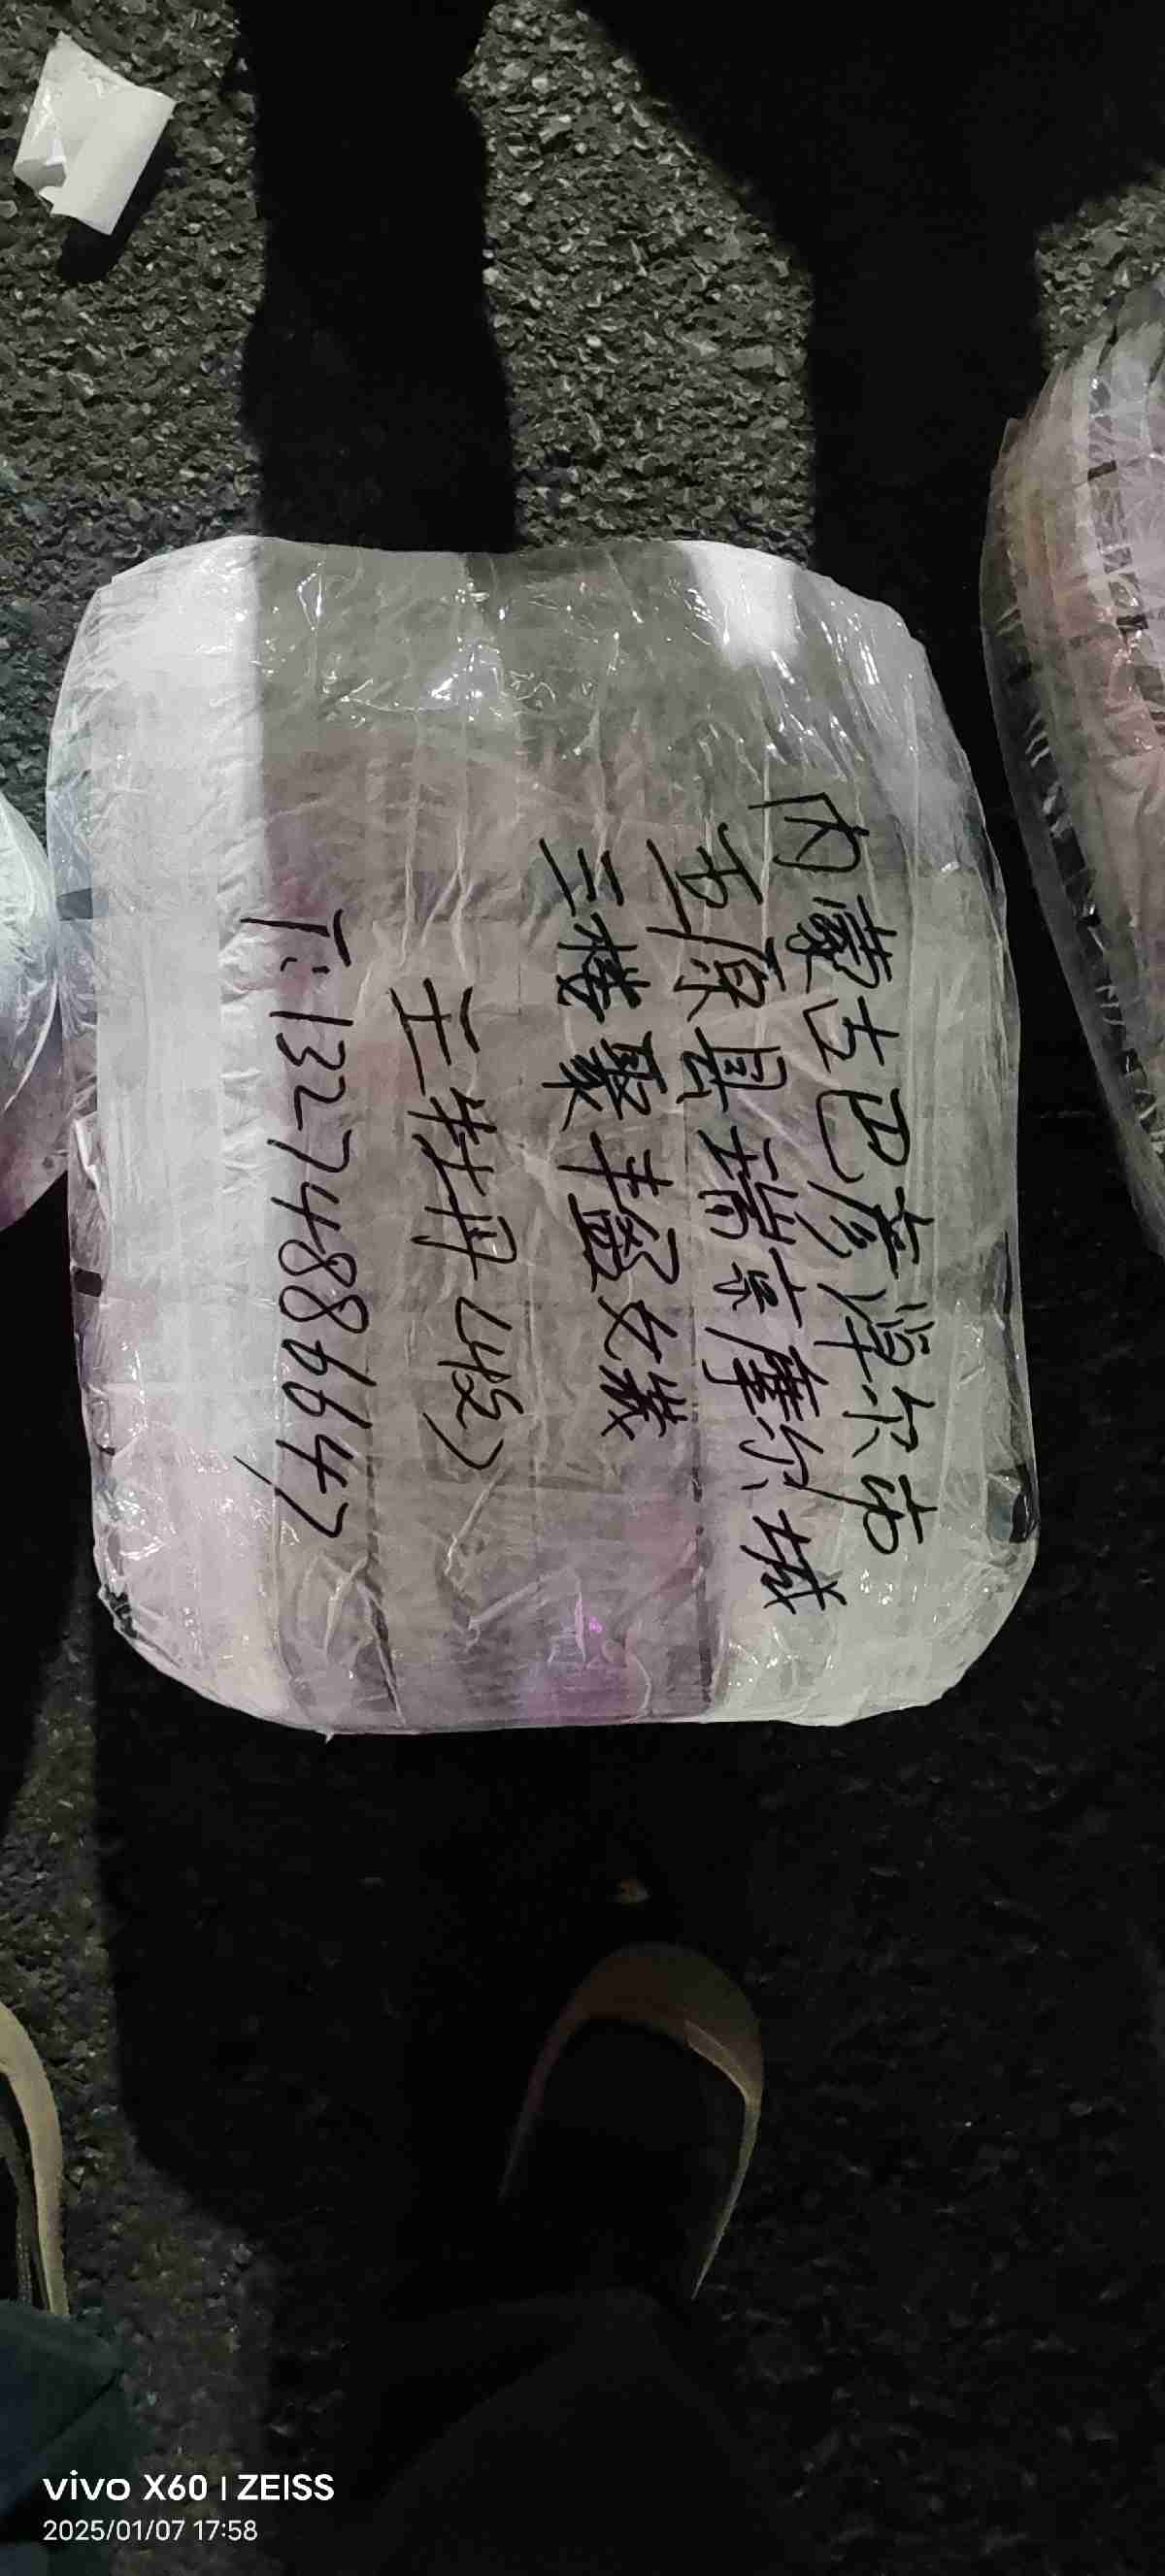 内蒙古巴彦淖尔市
五原县瑞京摩尔城
三楼聚丰盈女装
王牡丹（收）
T:13274886647
vivo X60 | ZEISS
2025/01/07 17:58